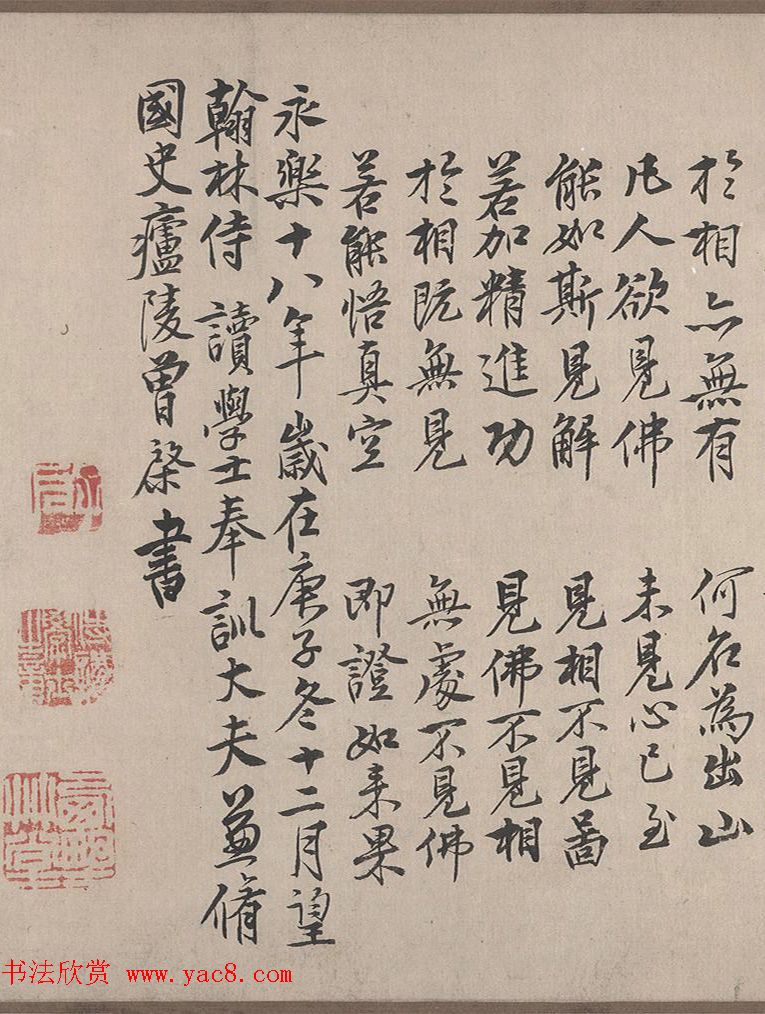 於相亦無有 何名為出山
凡人欲見佛 未見心已至
能如斯見解 見相不見啚
若加精進功 見佛不見相
於相既無見 無處不見佛
若能悟真空 即證如来果
永樂十八年歲在庚子冬十二月望
翰林侍 讀學士奉訓大夫兼脩
國史廬陵曾棨書
书法欣赏 www.yac8.com